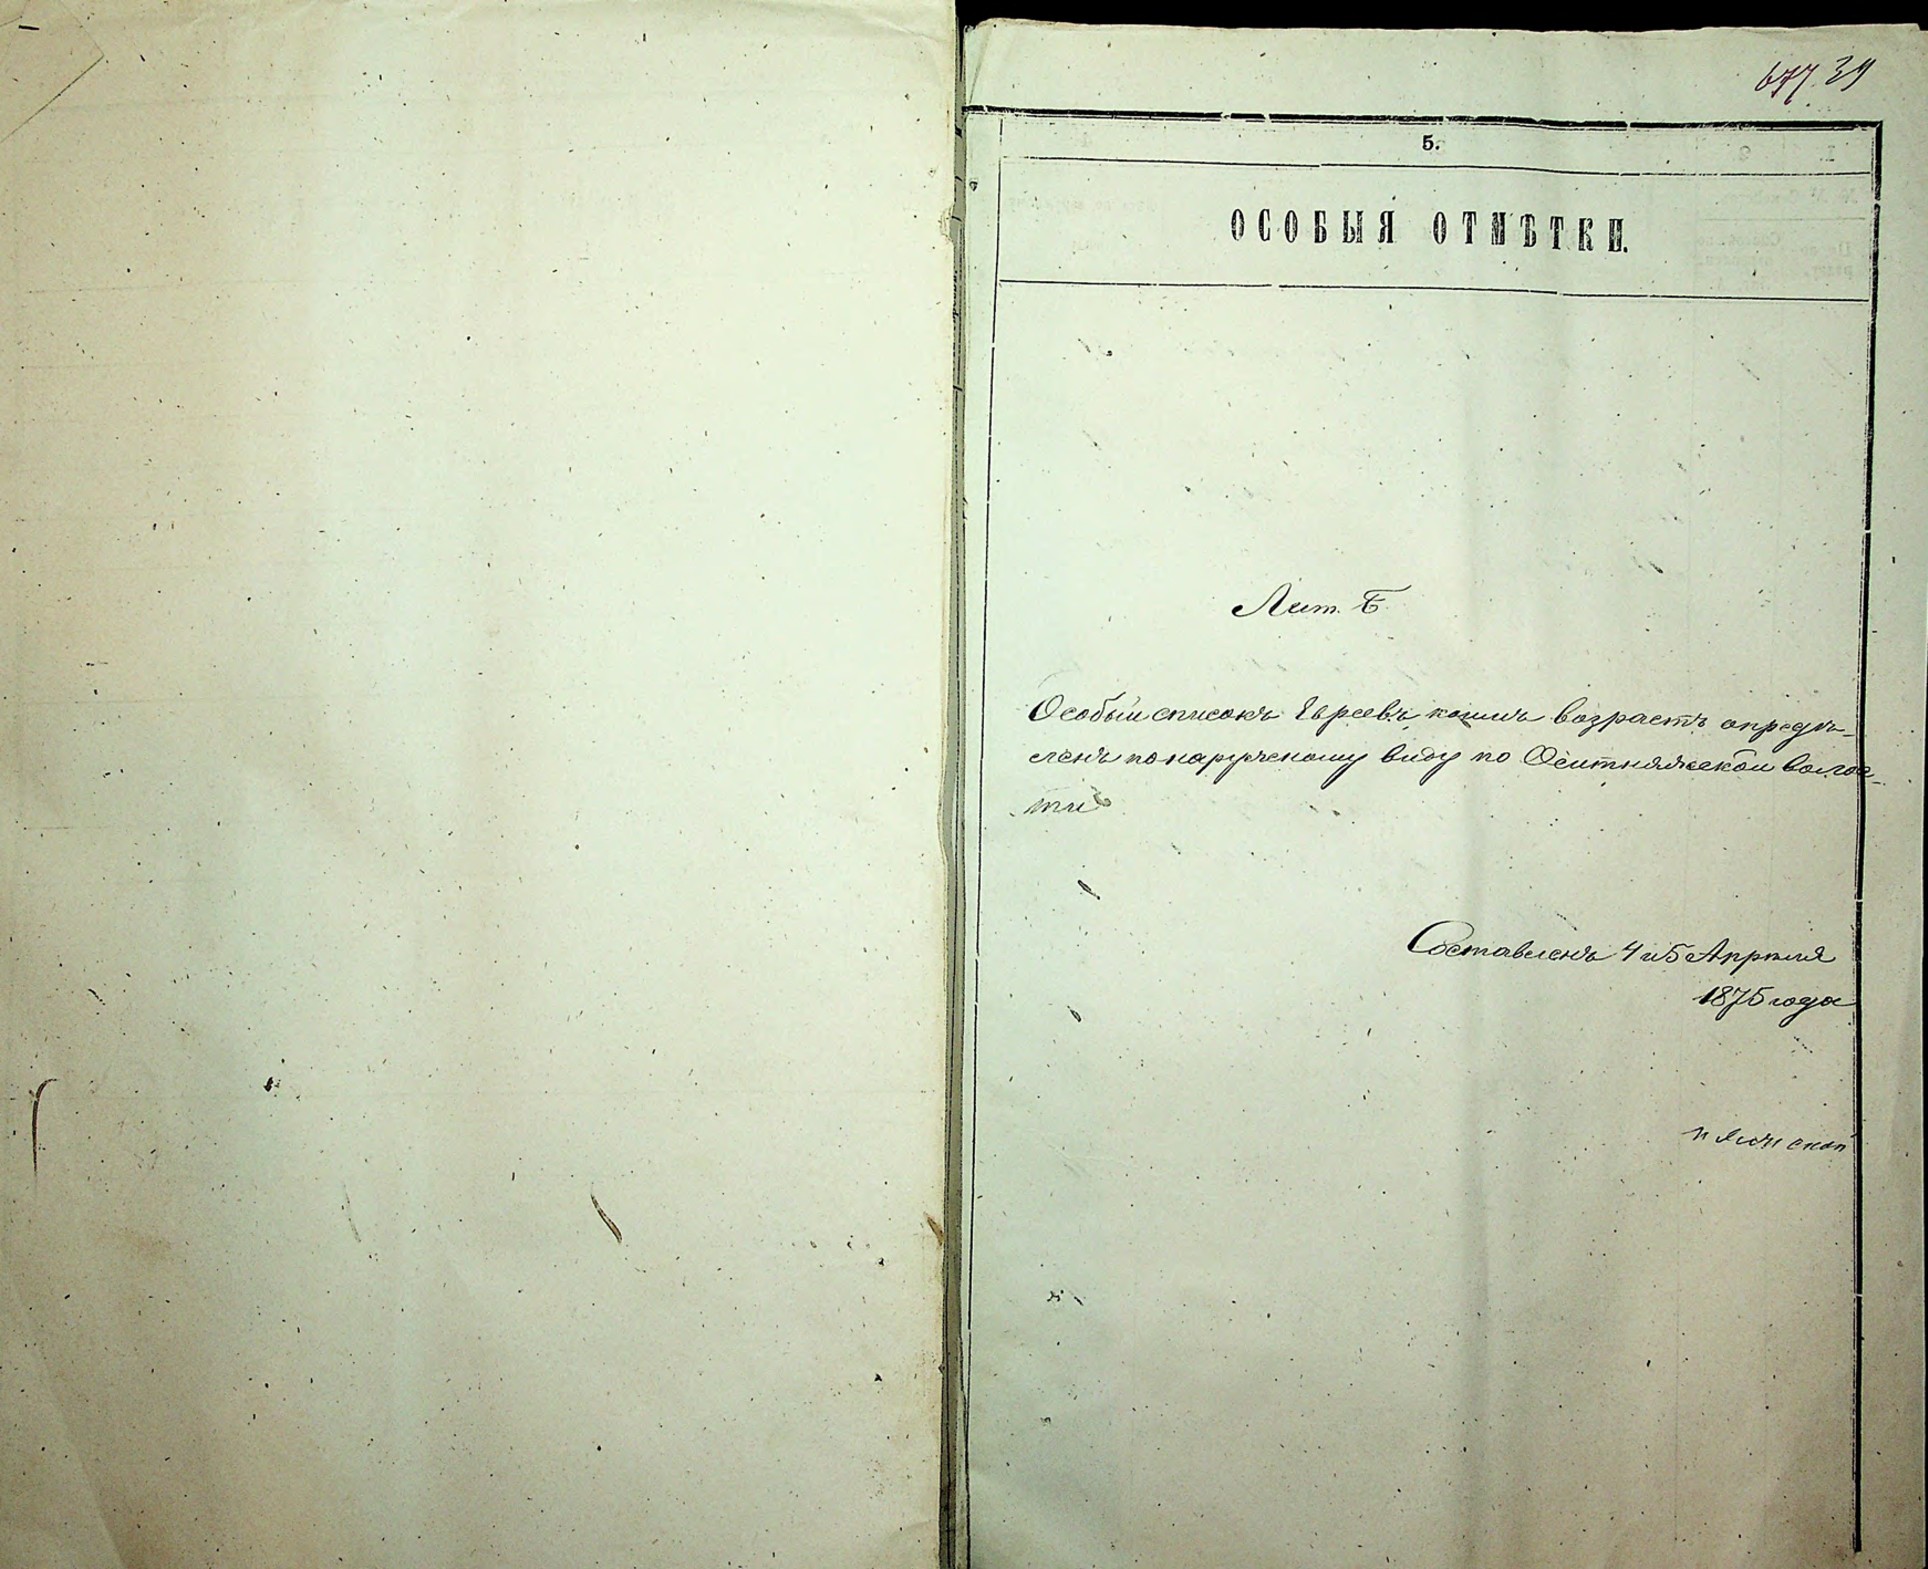 677 39
5.
ОСОБЫЯ ОТМѢТКИ.
Лит. Б.
Особый списокъ Евреевъ, коимъ возрастъ опредѣ-
ленъ по наружному виду по Оситняжской волос-
ти
Составленъ 4 и 5 Апрѣля
1875 года